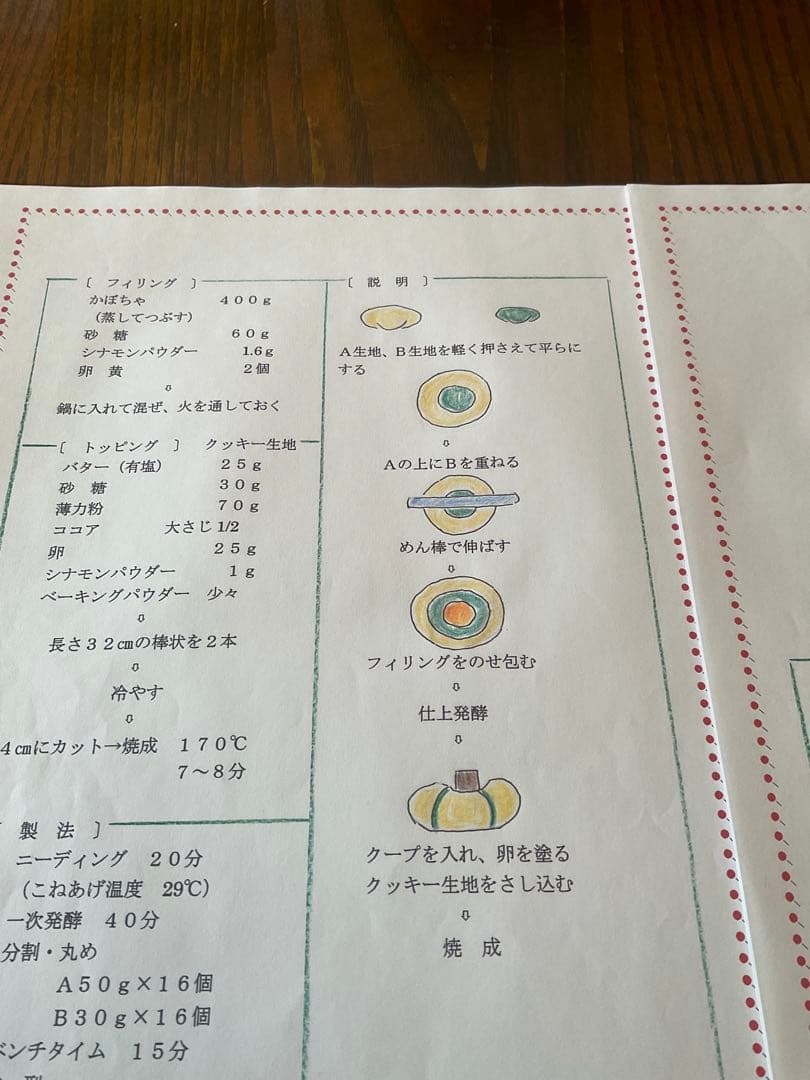 〔 フィリング 〕
かぼちゃ 400g
(蒸してつぶす)
砂 糖 60g
シナモンパウダー 1.6g
卵 黄 2個
⇩
鍋に入れて混ぜ、火を通しておく
〔 トッピング 〕 クッキー生地
バター(有塩) 25g
砂 糖 30g
薄力粉 70g
ココア 大さじ1/2
卵 25g
シナモンパウダー 1g
ベーキングパウダー 少々
⇩
長さ32㎝の棒状を2本
⇩
冷やす
⇩
4㎝にカット→焼成 170℃
7～8分
製 法 〕
ニーディング 20分
(こねあげ温度 29℃)
一次発酵 40分
分割・丸め
A50g×16個
B30g×16個
ベンチタイム 15分
〔 説 明 〕
A生地、B生地を軽く押さえて平らに
する
⇩
Aの上にBを重ねる
めん棒で伸ばす
⇩
フィリングをのせ包む
⇩
仕上発酵
⇩
クープを入れ、卵を塗る
クッキー生地をさし込む
⇩
焼 成